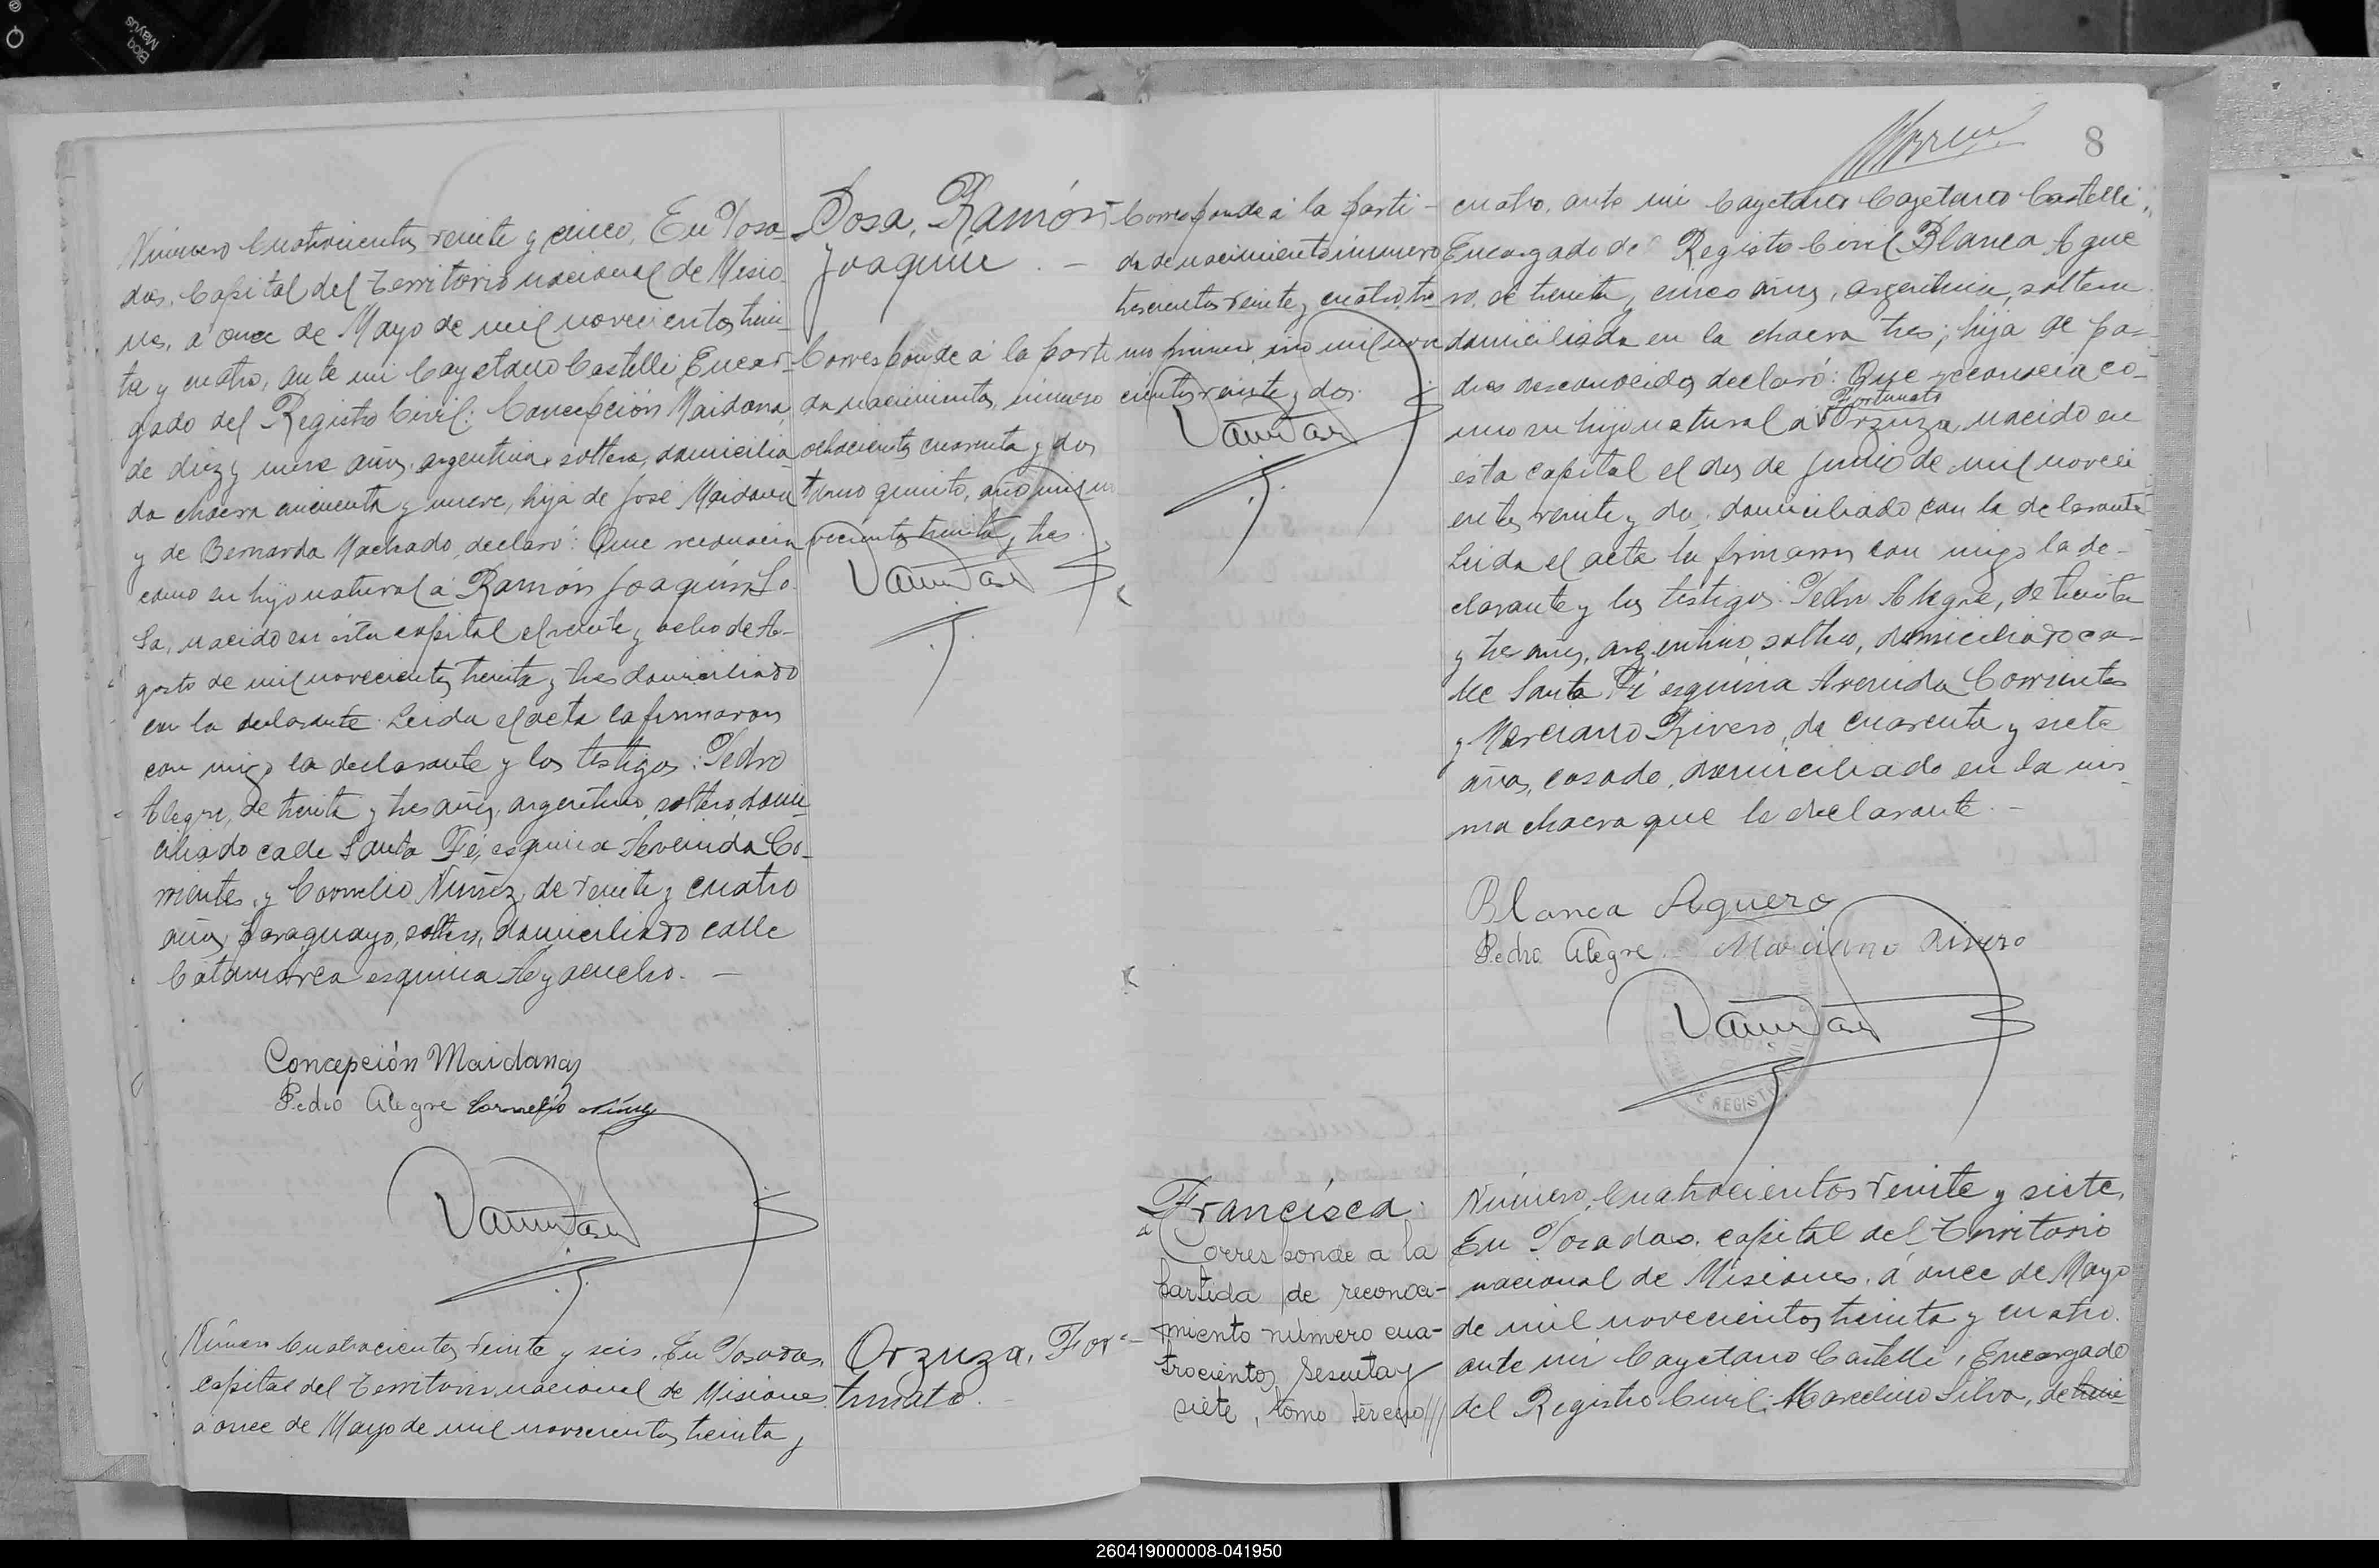 Número Cuatrocientos veinte y cinco. En Posa-
das, Capital del Territorio nacional de Misio-
nes, a once de Mayo de mil novecientos trein-
ta y cuatro, ante mi Cayetano Castelli, Encar-
gado del Registro Civil: Concepción Maidana,
de diez y nueve años, argentina, soltera, domicilia-
da chacra cincuenta y nueve, hija de José Maidana
y de Bernarda Machado, declaró: Que reconocia
como su hijo natural á Ramón Joaquín So-
sa, nacido en ésta capital el veinte y ocho de A-
gosto de mil novecientos treinta y tres domiciliado
con la declarante. Leida el acta la firmaron
con migo la declarante y los testigos: Pedro
Alegre, de treinta y tres años, argentino, soltero, domi-
ciliado calle Santa Fé, esquina Avenida Co-
rrientes, y Cornelio Nuñez, de veinte y cuatro
años, paraguayo, soltero, domiciliado calle
Catamarca esquina Ayacucho. -
Concepción Maidana
Pedro Alegre Cornelio Núñez
Número Cuatrocientos veinte y seis. En Posadas,
capital del Territorio nacional de Misiones
a once de Mayo de mil novecientos treinta y
Sosa, Ramón
Joaquin. -
Corresponde á la parti
da nacimientos, número
ochocientos cuarenta y dos
tomo quinto, año mil no
vecientos treinta y tres.
Orzuza, For-
tunato. -
8
Corresponde á la parti-
da de nacimiento número
trescientos veinte y cuatro, to
mo primero, año mil nove
cientos veinte y dos.
cuatro, ante mi Cayetano Cayetano Castelli,
Encargado del Registro Civil Blanca Ague
ro, de treinta y cinco años, argentina, soltera
domiciliada en la chacra tres; hija de pa-
dres desconocidos, declaró: Que reconocia co-
Fortunato
mo su hijo natural a Orzuza, nacido en
esta capital el dos de Junio de mil noveci
entos veinte y dos, domiciliado con la declarante
Leida el acta la firmaron con migo la de-
clarante y los testigos: Pedro Alegre, de treinta
y tres años, argentino, soltero, domiciliado ca-
lle Santa Fé esquina Avenida Corrientes
y Marciano Rivero, de cuarenta y siete
años, casado, domiciliado en la mis
ma chacra que la declarante. -
Blanca Aguero
Pedro Alegre Marciano Rivero
Francisca
Corresponde a la
partida de reconoci-
miento número cua-
trocientos sesenta y
siete, tomo tercero
Número Cuatrocientos veinte y siete.
En Posadas, capital del Territorio
nacional de Misiones, á once de Mayo
de mil novecientos treinta y cuatro.
ante mi Cayetano Castelli, Encargado
del Registro Civil: Marcelino Silva, de trein-
260419000008-041950